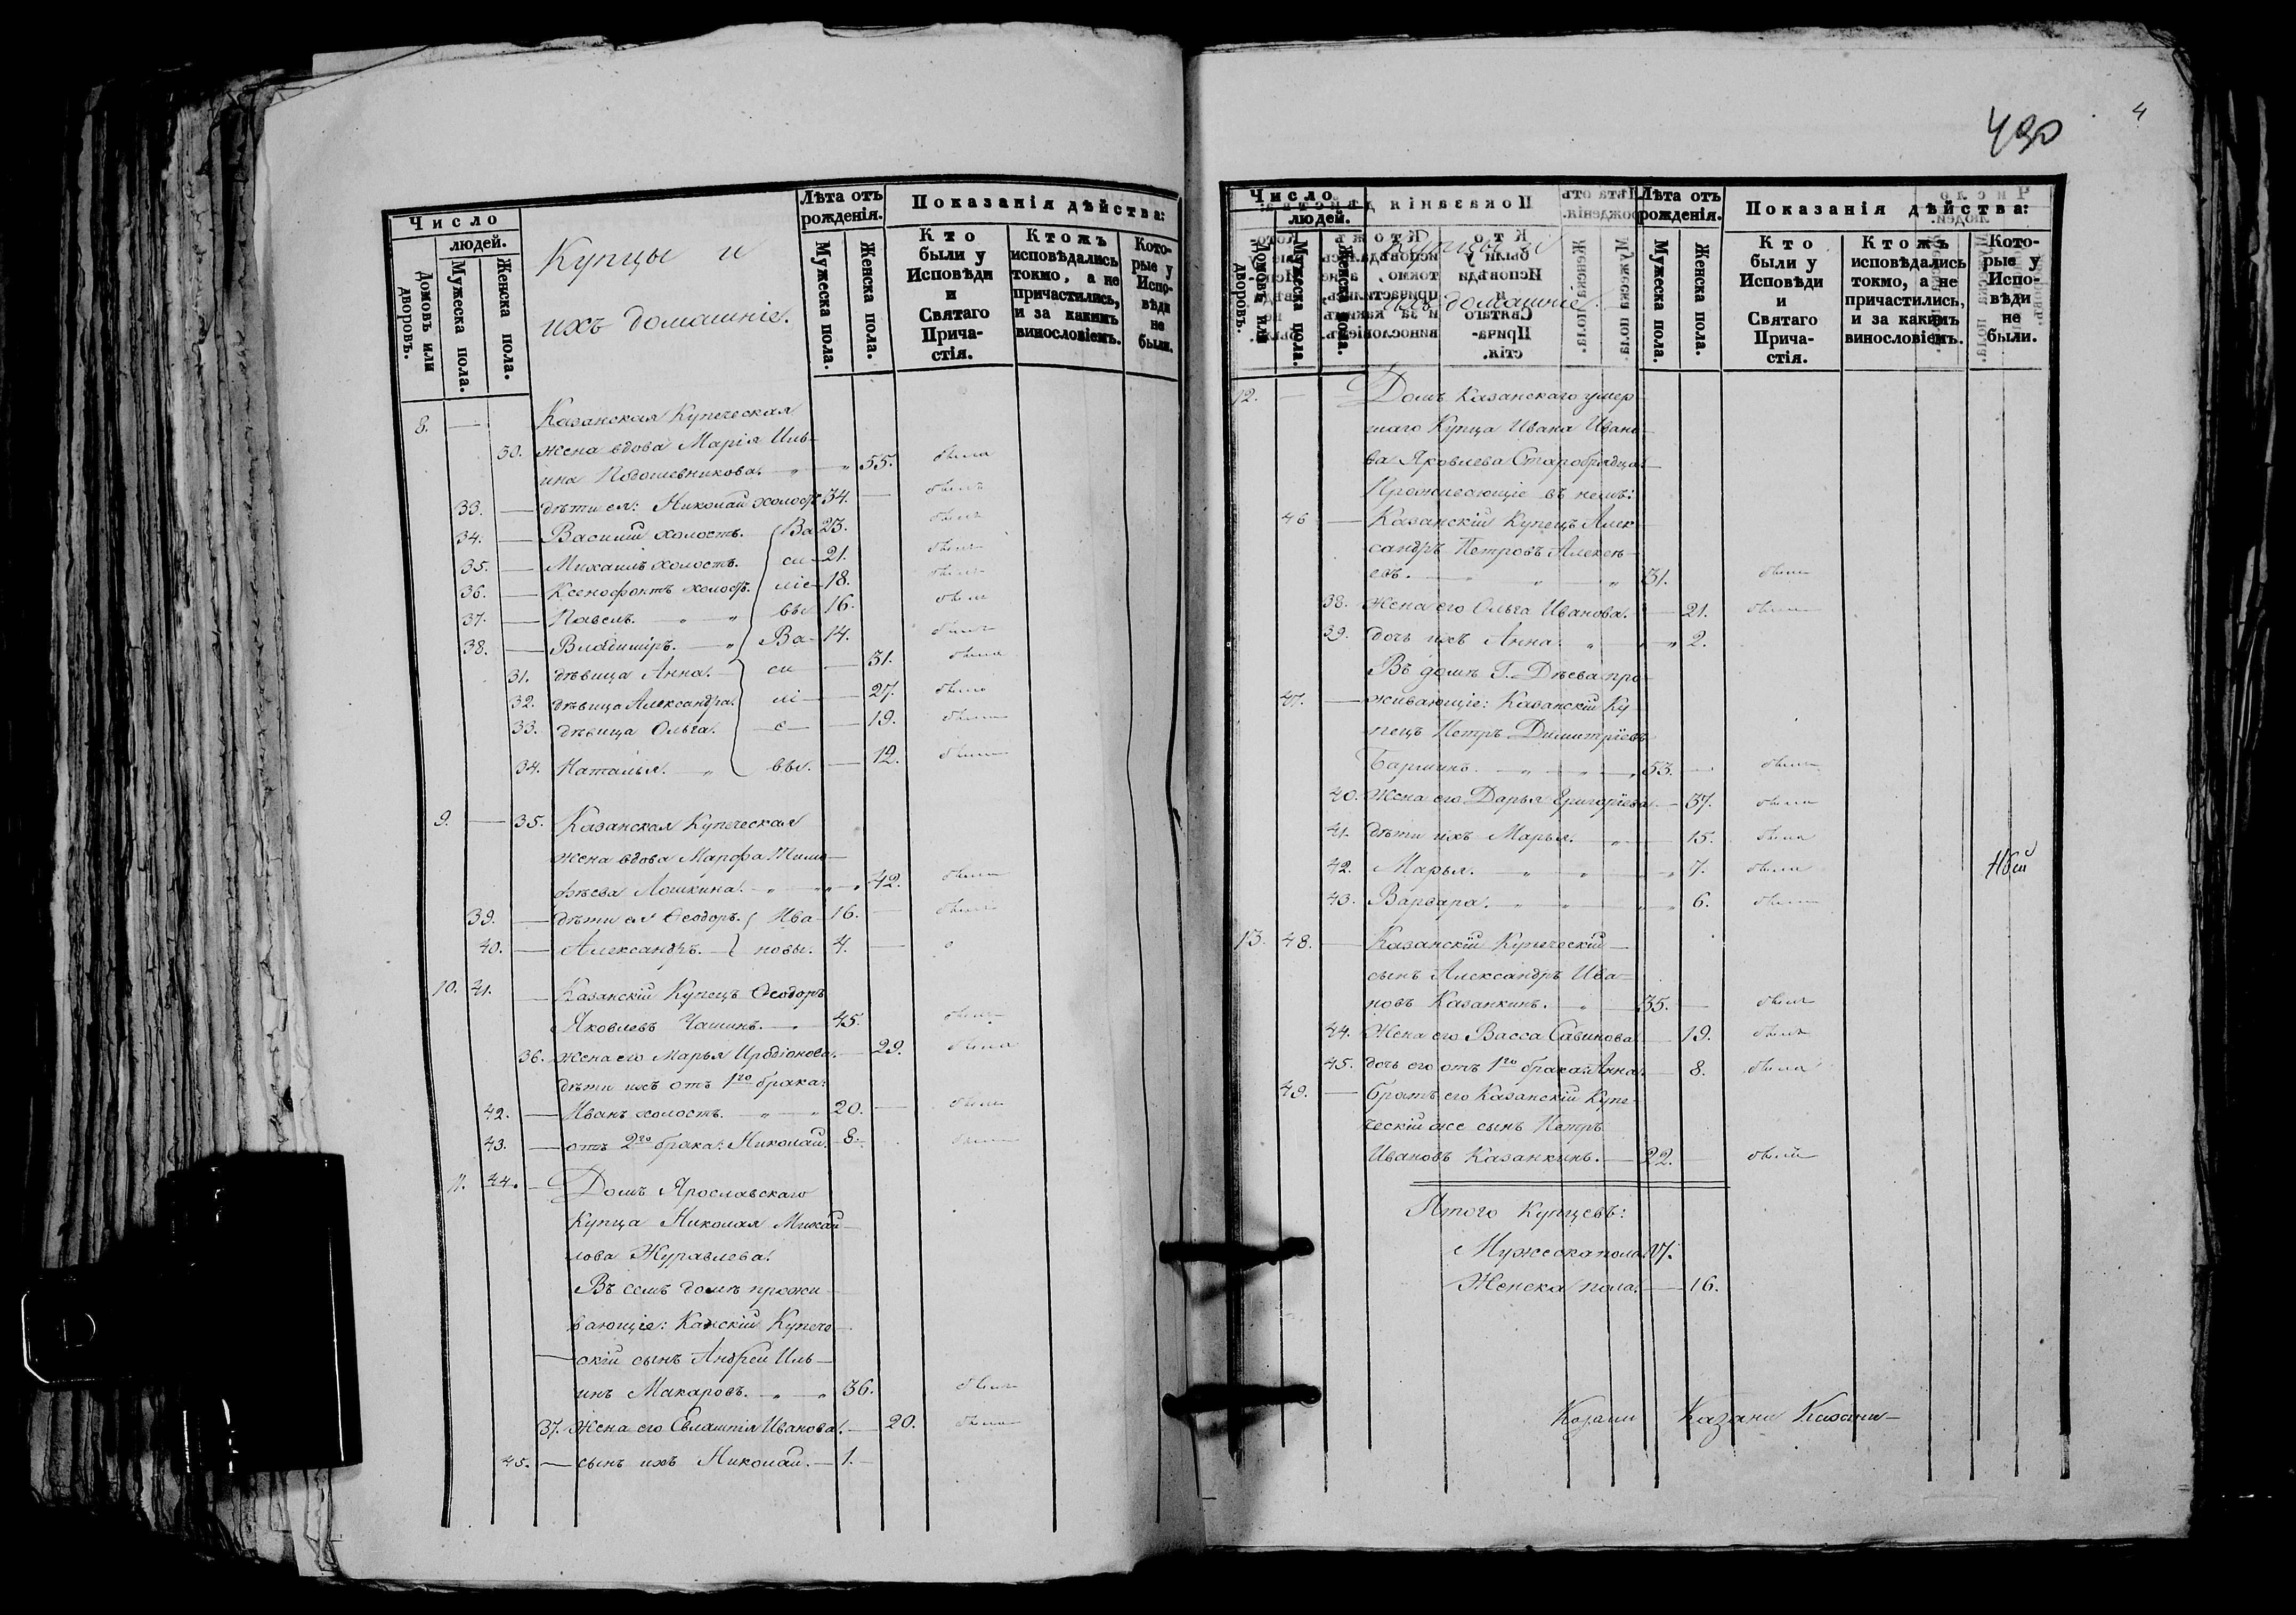 Число
людей.
Домовъ или дворовъ.
Мужеска пола.
Женска пола.
Купцы и
ихъ домашніе.
Лѣта отъ
рожденія.
Мужеска пола.
Женска пола.
Показанія дѣйства:
Кто
были у
Исповѣди
и
Святаго
Прича-
стія.
Ктожъ
исповѣдались
токмо, а не
причастились,
и за какимъ
винословіемъ.
Кото-
рые у
Испо-
вѣди
не
были.
8. — Казанская Купеческая
30. жена вдова Марія Иль-
ина Подошевникова. 55. была
33. — дѣти ея: Николай холостъ 34. — былъ
34. — Василій холостъ. Ва 23. былъ
35. — Михаилъ холостъ. си 21. былъ
36. — Ксенофонтъ холостъ. ліе 18. былъ
37. — Павелъ. вы 16. былъ
38. — Владиміръ. Ва 14. былъ
31. дѣвица Анна. си — 31. была
32. дѣвица Александра. лі — 27. была
33. дѣвица Ольга. е — 19. была
34. Наталья. вы. — 12. была
9. — 35. Казанская Купеческая
жена вдова Марфа Тимо-
фѣева Лошкина. 42. была
39. — дѣти ея Ѳеодоръ. Ива 16. — былъ
40. — Александръ. новы. 4. —
10. 41. — Казанскій Купецъ Ѳеодоръ
Яковлевъ Чашинъ. — 45. былъ
36. жена его Марья Иродіонова. — 29. была
дѣти ихъ отъ 1го брака:
42. — Иванъ холостъ. 20. — былъ
43. — отъ 2го брака: Николай. 8. былъ
11. 44. — Домъ Ярославскаго
Купца Николая Михай-
лова Журавлева.
Въ семъ домѣ прожи-
вающіе: Казанскій Купече-
скій сынъ Андрей Иль-
инъ Макаровъ. 36. былъ
37. Жена его Евлампія Иванова. — 20. была
45. — сынъ ихъ Николай. — 1. —
4
490
Число
людей.
Домовъ или дворовъ.
Мужеска пола.
Женска пола.
Купцы и
ихъ домашніе.
Лѣта отъ
рожденія.
Мужеска пола.
Женска пола.
Показанія дѣйства:
Кто
были у
Исповѣди
и
Святаго
Прича-
стія.
Ктожъ
исповѣдались
токмо, а не
причастились,
и за какимъ
винословіемъ.
Кото-
рые у
Испо-
вѣди
не
были.
12. — Домъ Казанскаго умер-
шаго Купца Ивана Ивано-
ва Яковлева Старобрядца.
Проживающіе въ немъ:
46 — Казанскій Купецъ Алек-
сандръ Петровъ Алексѣ-
евъ. 31. былъ
38. Жена его Ольга Иванова. — 21. была
39. дочь ихъ Анна. 2.
Въ домѣ Г. Дѣева про-
47. — живающіе: Казанскій Ку-
пецъ Петръ Димитріевъ
53. — былъ
40. Жена его Дарья Григоріева. — 37. была
41. дѣти ихъ Марья. 15. была
42. Марья. 7. была
43. Варвара. 6. была
13. 48. — Казанскій Купеческій
сынъ Александръ Ива-
новъ Казанкинъ. 35. — былъ
44. Жена его Васса Савинова. — 19. была
45. дочь его отъ 1го брака: Анна. — 8. была
49. — братъ его Казанскій Купе-
ческій же сынъ Петръ
Ивановъ Казанкинъ. — 22. — былъ
Итого Купцевъ:
Мужеска пола. 17.
Женска пола. — 16.
Казани Казани Казани